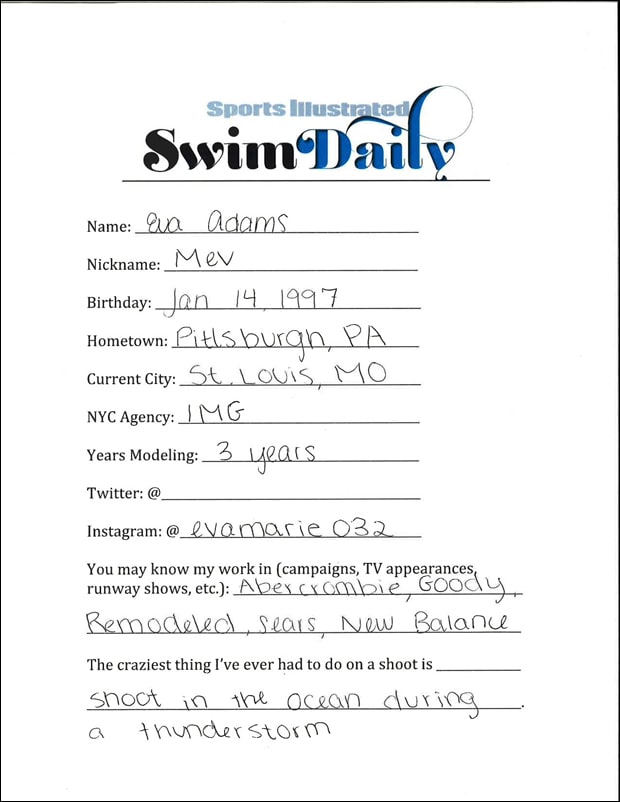 Sports Illustrated
Swim Daily
Name: Eva Adams
Nickname: Mev
Birthday: Jan 14, 1997
Hometown: Pittsburgh, PA
Current City: St. Louis, MO
NYC Agency: IMG
Years Modeling: 3 years
Twitter: @
Instagram: @ evamarie032
You may know my work in (campaigns, TV appearances,
runway shows, etc.): Abercrombie, Goody,
Remodeled, Sears, New Balance
The craziest thing I've ever had to do on a shoot is
shoot in the ocean during.
a thunderstorm